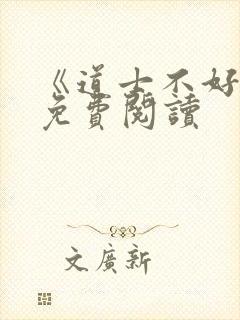 《道士不好
免費閱讀
文廣新